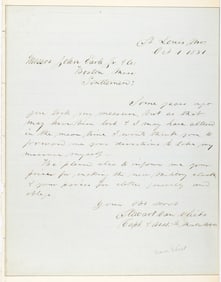 St Louis, Mo.
Oct 1 1881
Messrs John Earle Jr & Co.
Boston Mass
Gentlemen:
Some years ago
you took my measure, but as that
may have been lost & I may have altered
in the mean time I will thank you to
forward me your directions to take my
measure myself.
Also please also to inform me your
prices for making the new military cloak
& your prices for clothes generally and
oblige
Your Obt Servt
Capt &